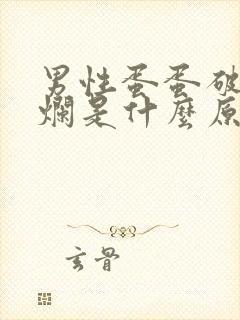 男性蛋蛋破
爛是什麼原
玄骨